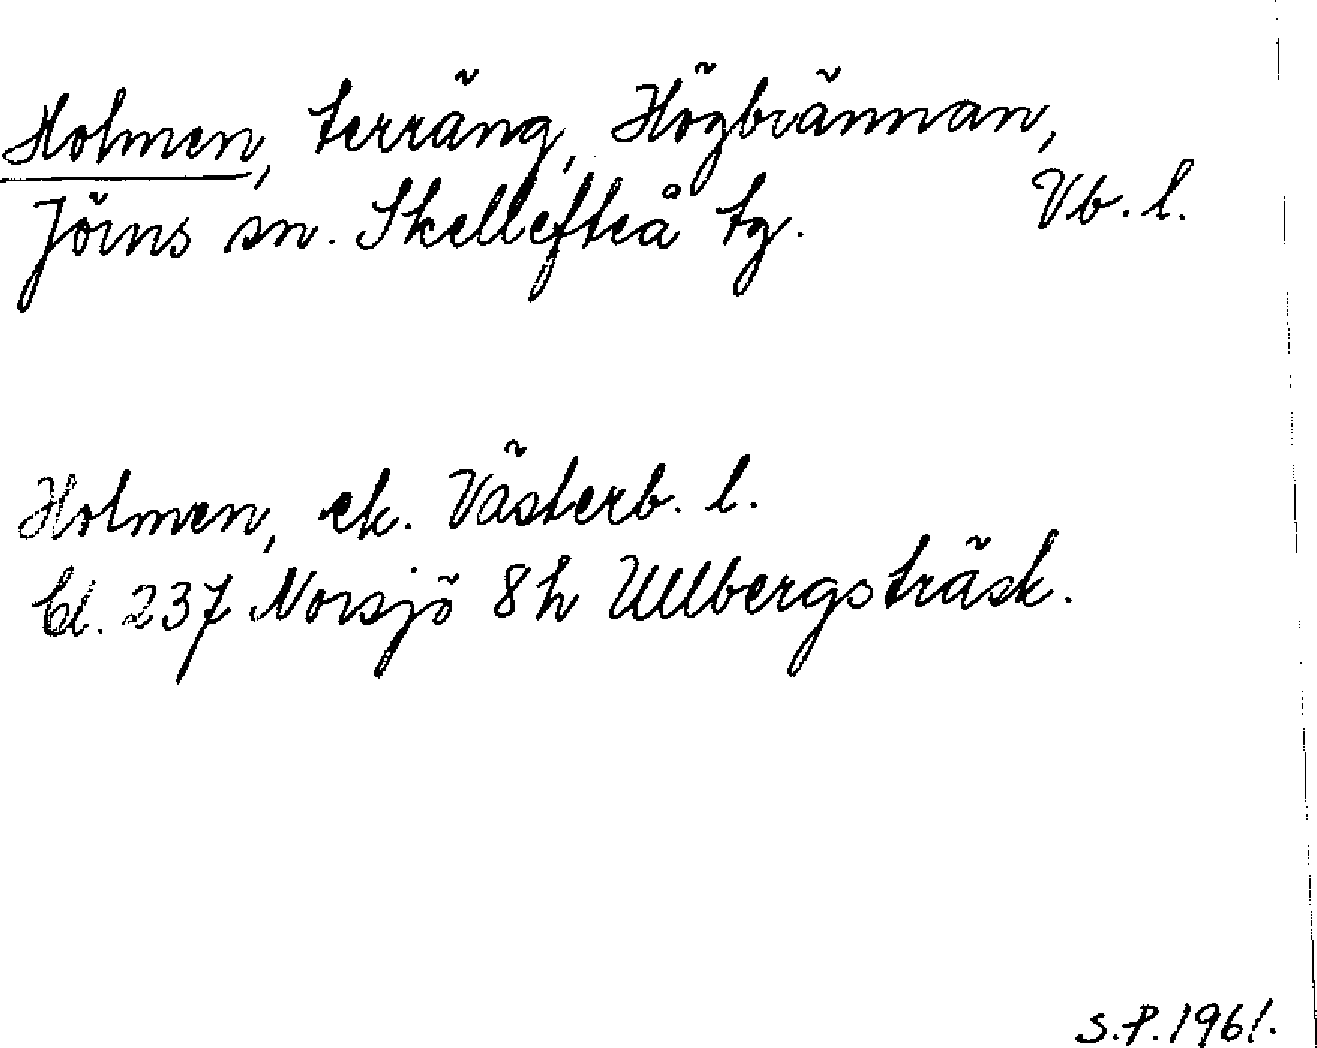 Holmen, terräng, Högbrännan,
Jörns sn. Skellefteå tg. Vb. l.
Holmen, ek. Västerb. l.
Bl. 237 Norsjö 8h Ullbergsträsk.
S.P. 1961.